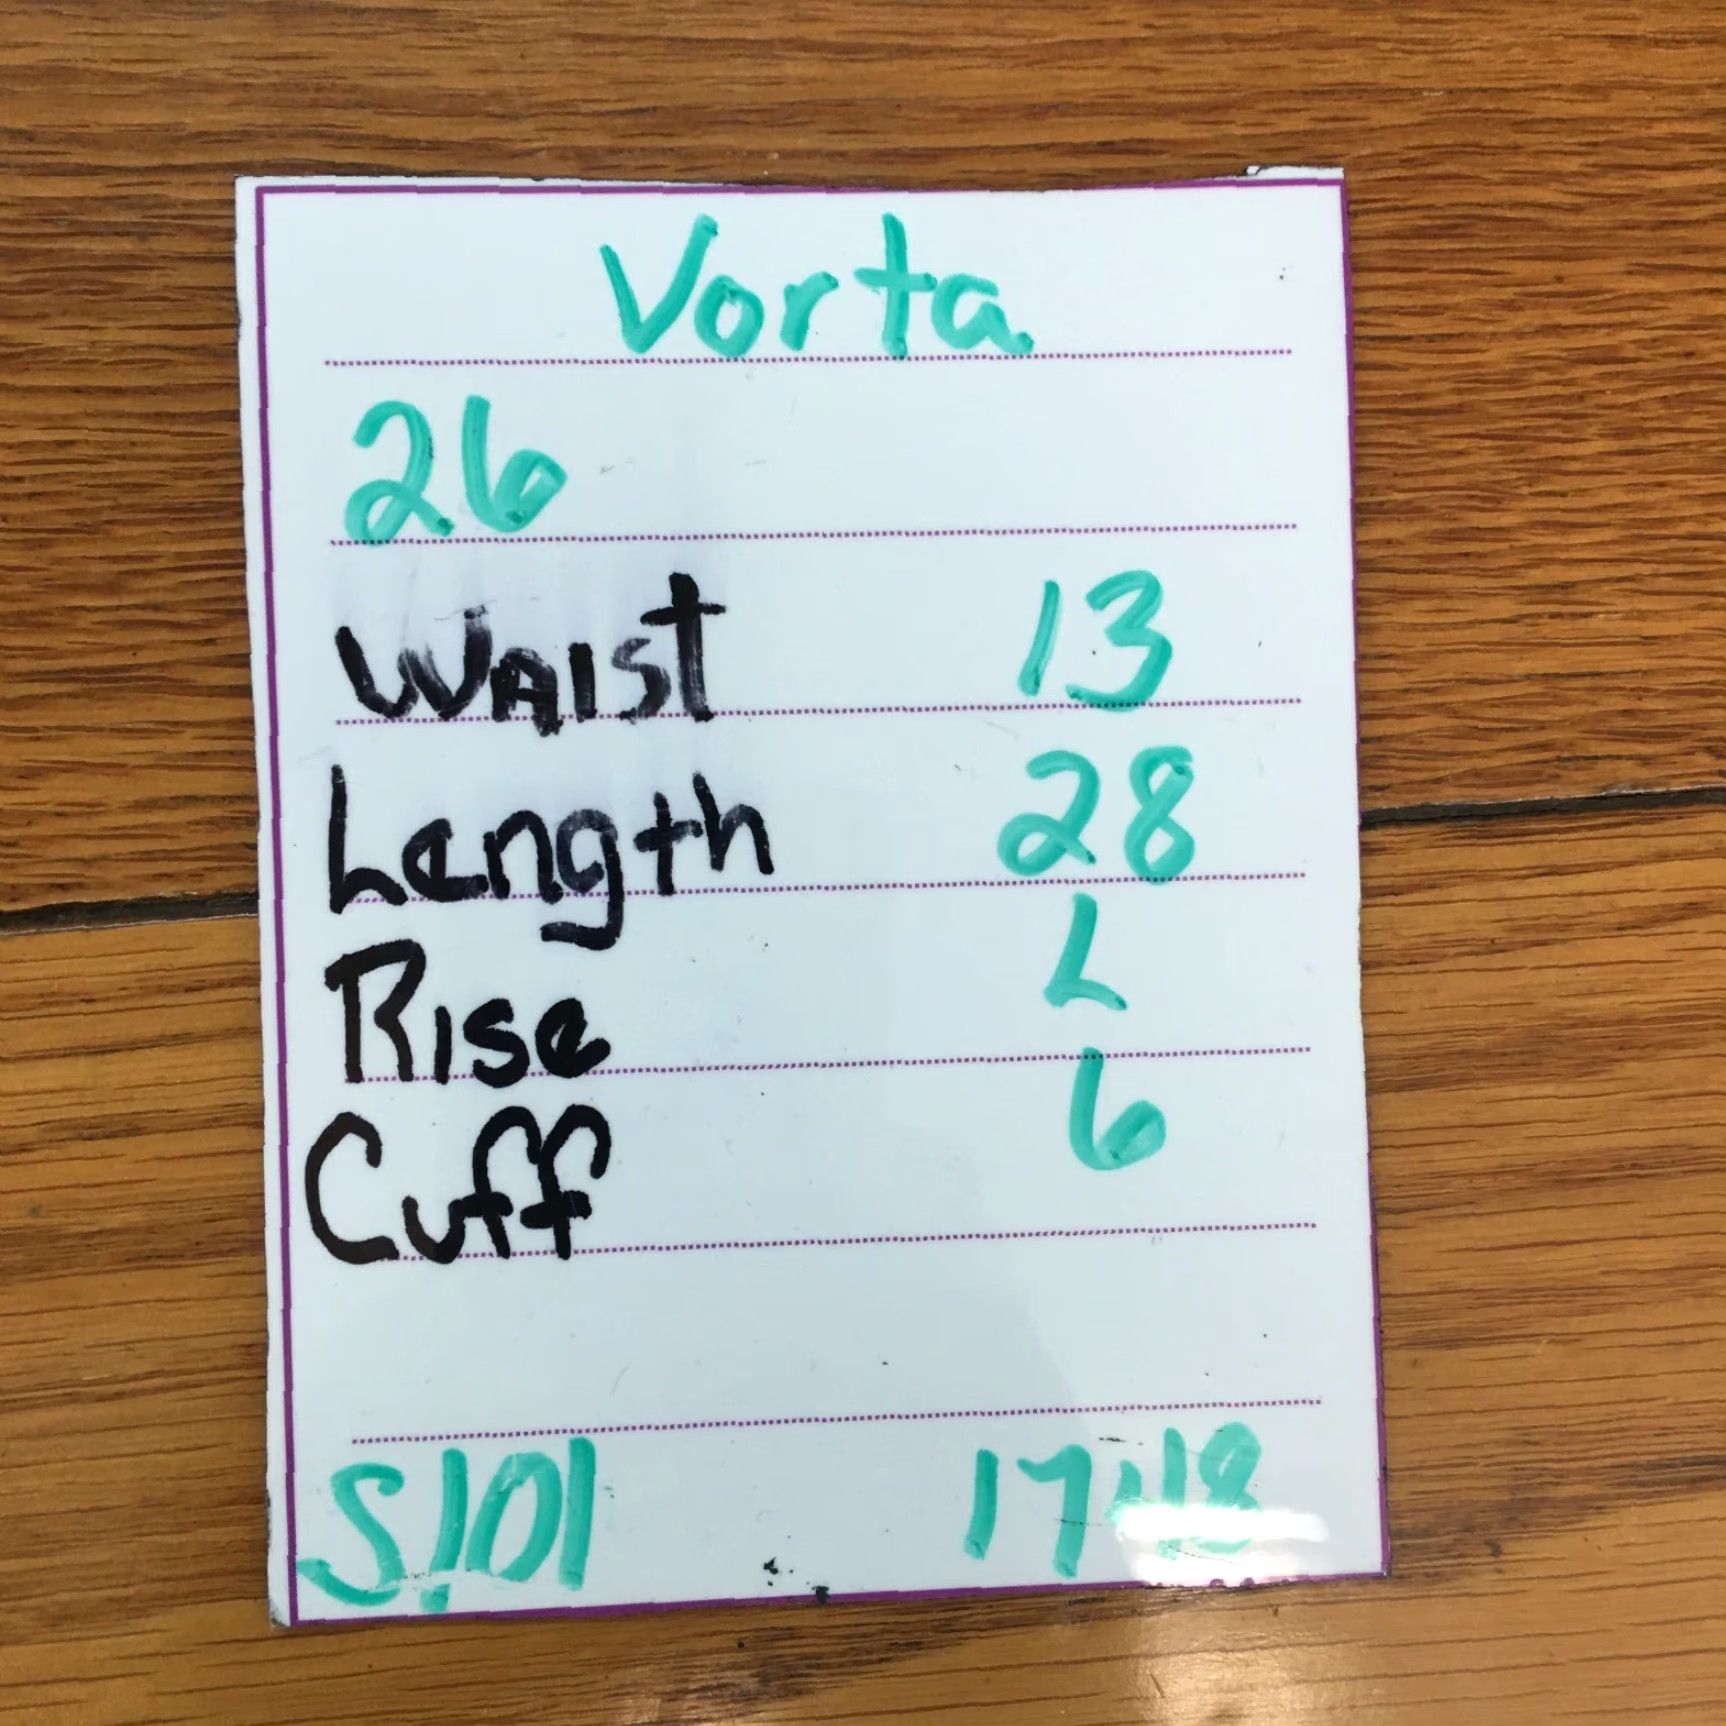 Vorta
26
Waist 13
Length 28
Rise L
Cuff 6
S101 1748